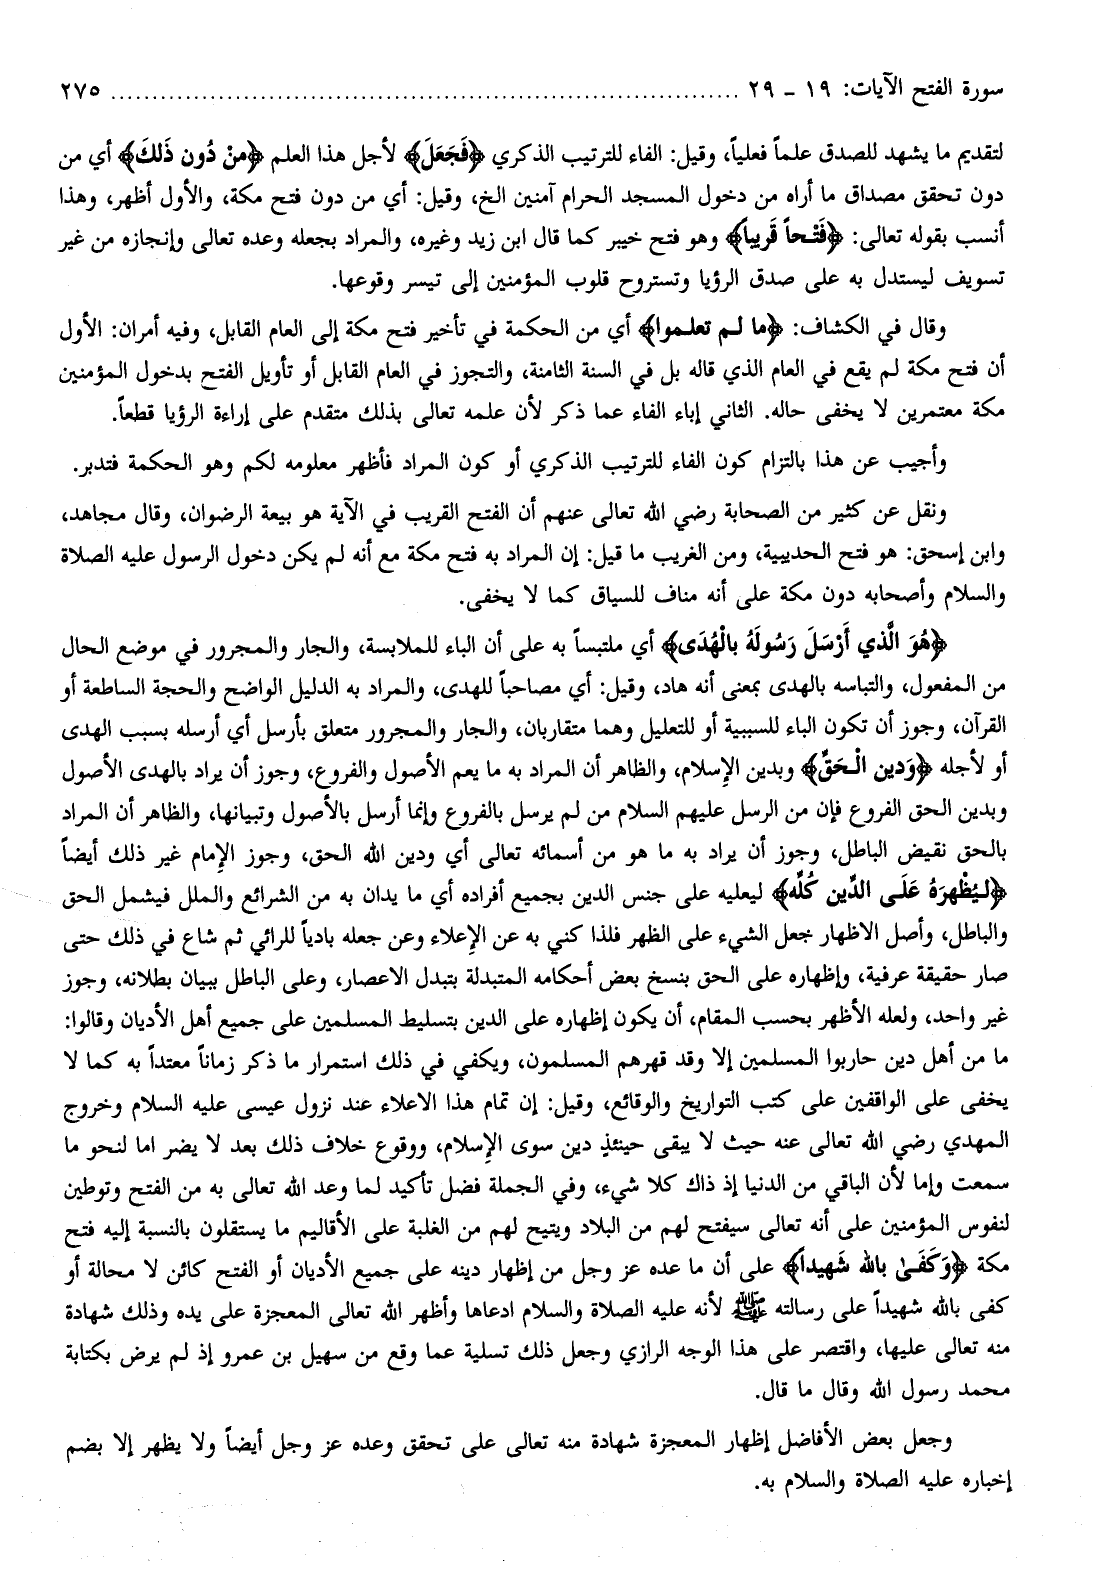 سورة الفتح الآيات: ١٩ - ٢٩ ........................................................................... ٢٧٥
لتقديم ما يشهد للصدق علماً فعلياً، وقيل: الفاء للترتيب الذكري ﴿فَجَعَلَ﴾ لأجل هذا العلم ﴿مِنْ دُونِ ذَلِكَ﴾ أي من
دون تحقق مصداق ما أراه من دخول المسجد الحرام آمنين الخ، وقيل: أي من دون فتح مكة، والأول أظهر، وهذا
أنسب بقوله تعالى: ﴿فَتْحاً قَرِيباً﴾ وهو فتح خيبر كما قال ابن زيد وغيره، والمراد بجعله وعده تعالى وإنجازه من غير
تسويف ليستدل به على صدق الرؤيا وتستروح قلوب المؤمنين إلى تيسر وقوعها.
وقال في الكشاف: ﴿ما لم تعلموا﴾ أي من الحكمة في تأخير فتح مكة إلى العام القابل، وفيه أمران: الأول
أن فتح مكة لم يقع في العام الذي قاله بل في السنة الثامنة، والتجوز في العام القابل أو تأويل الفتح بدخول المؤمنين
مكة معتمرين لا يخفى حاله. الثاني إباء الفاء عما ذكر لأن علمه تعالى بذلك متقدم على إراءة الرؤيا قطعاً.
وأجيب عن هذا بالتزام كون الفاء للترتيب الذكري أو كون المراد فأظهر معلومه لكم وهو الحكمة فتدبر.
ونقل عن كثير من الصحابة رضي الله تعالى عنهم أن الفتح القريب في الآية هو بيعة الرضوان، وقال مجاهد،
وابن إسحق: هو فتح الحديبية، ومن الغريب ما قيل: إن المراد به فتح مكة مع أنه لم يكن دخول الرسول عليه الصلاة
والسلام وأصحابه دون مكة على أنه مناف للسياق كما لا يخفى.
﴿هُوَ الَّذي أَرْسَلَ رَسُولَهُ بالْهُدَى﴾ أي ملتبساً به على أن الباء للملابسة، والجار والمجرور في موضع الحال
من المفعول، والتباسه بالهدى بمعنى أنه هاد، وقيل: أي مصاحباً للهدى، والمراد به الدليل الواضح والحجة الساطعة أو
القرآن، وجوز أن تكون الباء للسببية أو للتعليل وهما متقاربان، والجار والمجرور متعلق بأرسل أي أرسله بسبب الهدى
أو لأجله ﴿وَدين الْحَقِّ﴾ وبدين الإِسلام، والظاهر أن المراد به ما يعم الأصول والفروع، وجوز أن يراد بالهدى الأصول
وبدين الحق الفروع فإن من الرسل عليهم السلام من لم يرسل بالفروع وإنما أرسل بالأصول وتبيانها، والظاهر أن المراد
بالحق نقيض الباطل، وجوز أن يراد به ما هو من أسمائه تعالى أي ودين الله الحق، وجوز الإِمام غير ذلك أيضاً
﴿ليُظْهِرَهُ عَلَى الدِّين كُلِّه﴾ ليعليه على جنس الدين بجميع أفراده أي ما يدان به من الشرائع والملل فيشمل الحق
والباطل، وأصل الاظهار جعل الشيء على الظهر فلذا كني به عن الإِعلاء وعن جعله بادياً للرائي ثم شاع في ذلك حتى
صار حقيقة عرفية، وإظهاره على الحق بنسخ بعض أحكامه المتبدلة بتبدل الاعصار، وعلى الباطل ببيان بطلانه، وجوز
غير واحد، ولعله الأظهر بحسب المقام، أن يكون إظهاره على الدين بتسليط المسلمين على جميع أهل الأديان وقالوا:
ما من أهل دين حاربوا المسلمين إلا وقد قهرهم المسلمون، ويكفي في ذلك استمرار ما ذكر زماناً معتداً به كما لا
يخفى على الواقفين على كتب التواريخ والوقائع، وقيل: إن تمام هذا الاعلاء عند نزول عيسى عليه السلام وخروج
المهدي رضي الله تعالى عنه حيث لا يبقى حينئذٍ دين سوى الإِسلام، ووقوع خلاف ذلك بعد لا يضر اما لنحو ما
سمعت وإما لأن الباقي من الدنيا إذ ذاك كلا شيء، وفي الجملة فضل تأكيد لما وعد الله تعالى به من الفتح وتوطين
لنفوس المؤمنين على أنه تعالى سيفتح لهم من البلاد ويتيح لهم من الغلبة على الأقاليم ما يستقلون بالنسبة إليه فتح
مكة ﴿وَكَفَىٰ بالله شَهيداً﴾ على أن ما عده عز وجل من إظهار دينه على جميع الأديان أو الفتح كائن لا محالة أو
كفى بالله شهيداً على رسالته ﷺ لأنه عليه الصلاة والسلام ادعاها وأظهر الله تعالى المعجزة على يده وذلك شهادة
منه تعالى عليها، واقتصر على هذا الوجه الرازي وجعل ذلك تسلية عما وقع من سهيل بن عمرو إذ لم يرض بكتابة
محمد رسول الله وقال ما قال.
وجعل بعض الأفاضل إظهار المعجزة شهادة منه تعالى على تحقق وعده عز وجل أيضاً ولا يظهر إلا بضم
إخباره عليه الصلاة والسلام به.